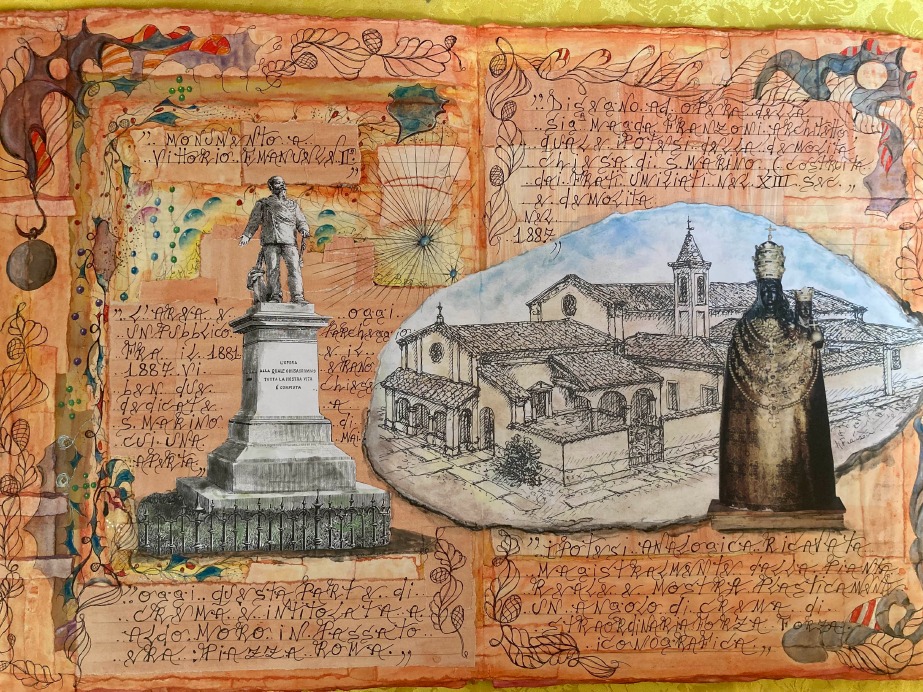 "MONUM&NTO A
ViTTORIO &MANU&L& II°"
"L'AR&A &
UN PUBBLiCO
FRA iL 1881
1887 Vi
B&N DU&
D&DiCAT&
S. MARiNO
CUi UNA
AP&RTA"
oggi
PARCH&GGiO
& iL
&RANO
CHi&S&
A
Di
MAi
L'OPERA
ALLA QUALE CONSACRAMMO
TUTTA LA NOSTRA VITA
È COMPIUTA
"Oggi QU&STA PART& di
CR&MA & iNTiTOLATA A
ALDO MORO iN PASSATO
&RA PiAZZA ROMA"
"DiS&GNO AD OP&RA D&LLA
Sig MAGDA FRANZONI ARCHiT&TTO
QUAL& iPOT&Si D&LLA D&MOLiTA
CHi&SA di S. MARiNO (COSTRUiTA
dai FRATi UMiLiATi N&L XIII S&C."
& D&MOLiTA
N&L
1887"
"iPOT&Si ANALOGiCA RiCAVATA
MAGiSTRALM&NT& DALLA PiANTA
R&AL& & MOSTRA PLASTiCAM&NT&
UN ANGOLO di CR&MA di
STRAORDiNARiA FORZA FORZA
iCONOGRAFiCA"